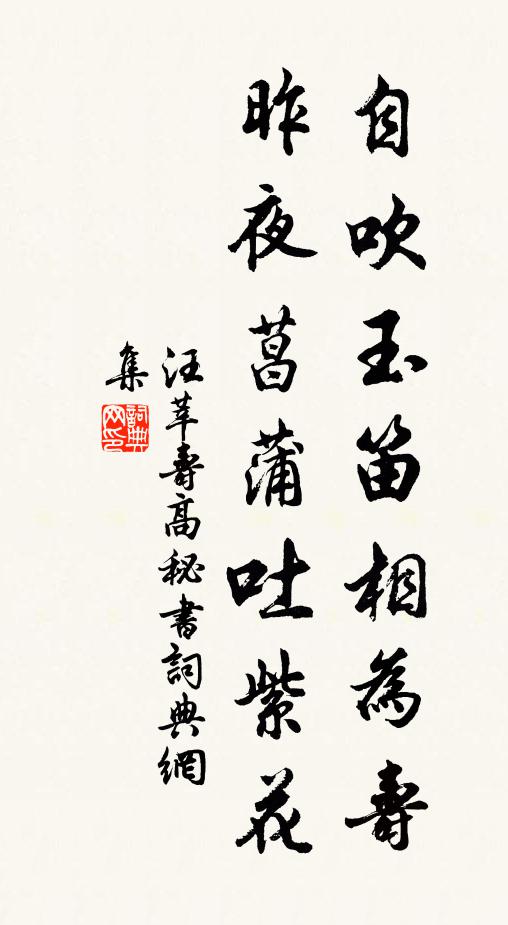 自吹玉笛相為壽
昨夜菖蒲吐紫花
汪莘壽高秘書詞典網
集
詞典網印